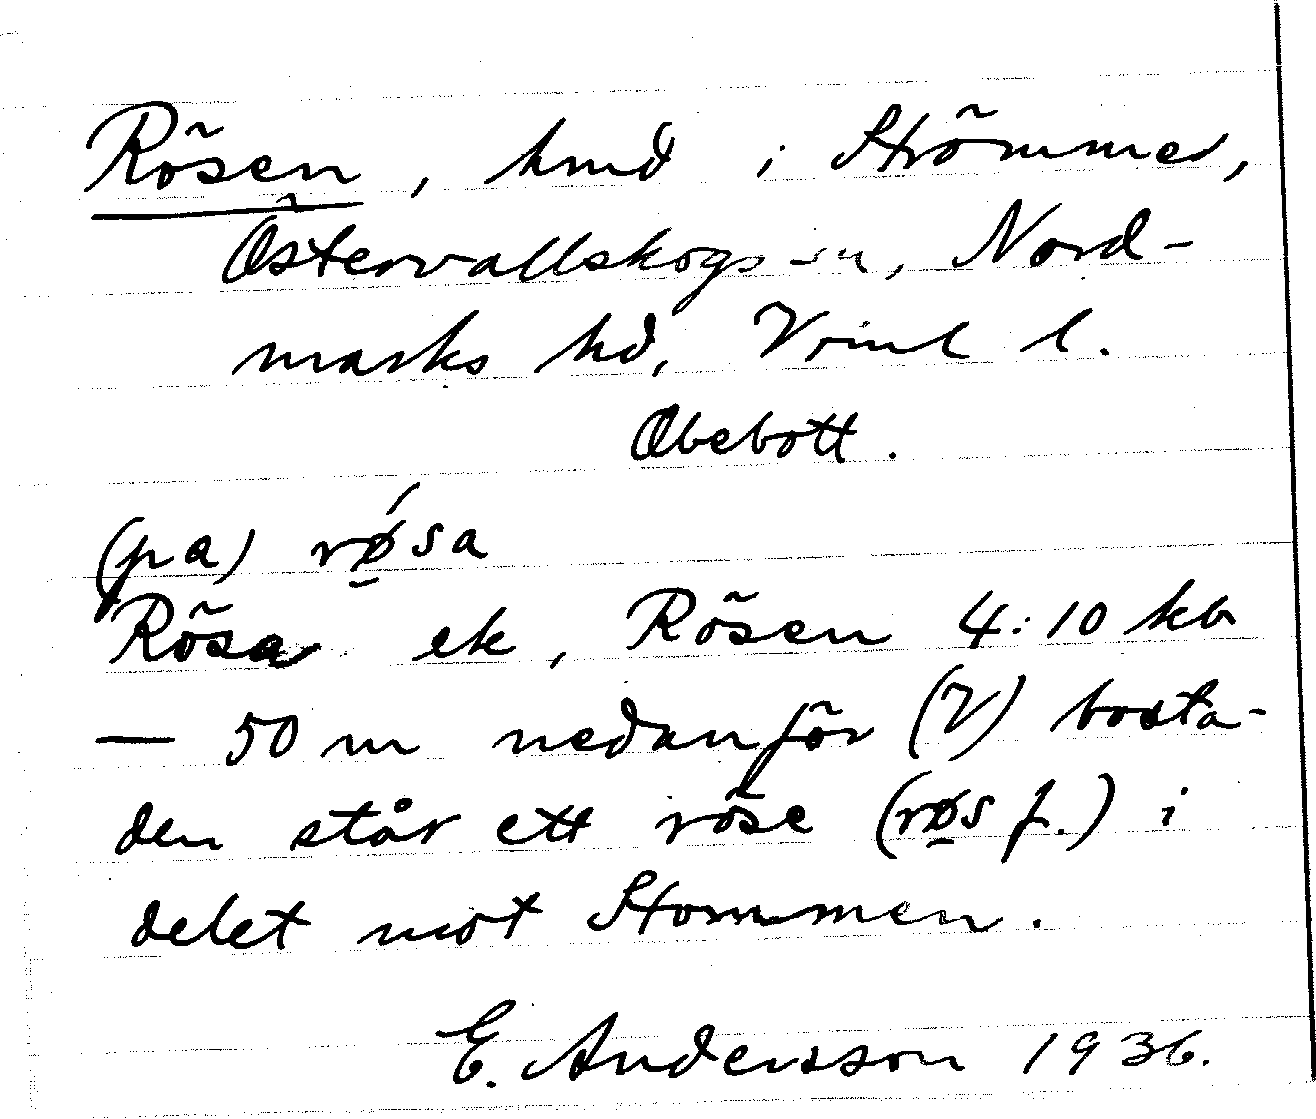 Rösen, hmd i Strömmer,
Östervallskogs sn, Nord-
marks hd, Vrml l.
Obebott.
(pa) rǿ̱sa
Rösa ek, Rösen 4:10 kb
— 50 m nedanför (V) bosta-
den står ett röse (rø̱s f.) i
delet mot Stommen.
E. Andersson 1936.